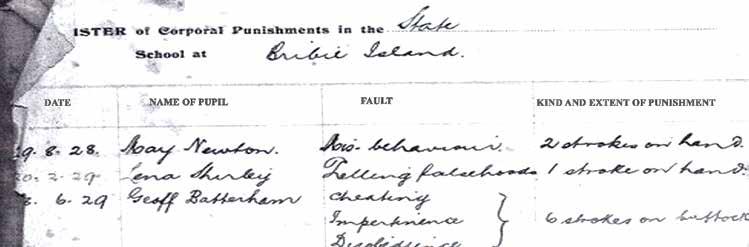 ISTER of Corporal Punishments in the State
School at Bribie Island.
DATE NAME OF PUPIL FAULT KIND AND EXTENT OF PUNISHMENT
9. 8. 28. May Newton. Mis-behaviour. 2 strokes on hand.
0. 2. 29 Lena Shirley Telling falsehoods 1 stroke on hand.
8. 6. 29 Geoff Batterham Cheating
Impertinence 6 strokes on buttock
Disobidience